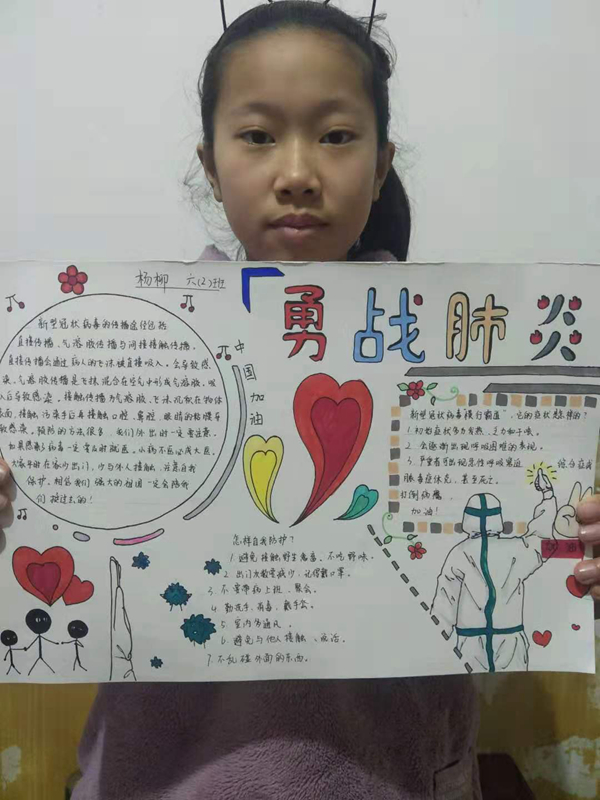 杨柳 六(2)班
勇战肺炎
新型冠状病毒的传播途径包括
直接传播、气溶胶传播与间接接触传播。
直接传播会通过病人的飞沫被直接吸入。会导致感
染。气溶胶传播是飞沫混合在空中形成气溶胶，吸
入后导致感染，接触传播为气溶胶、飞沫沉积在物体
表面，接触污染手后再接触口腔、鼻腔、眼睛的粘膜导
致感染。预防的方法很多，我们外出时一定要注意。
如果感染了病毒一定要及时就医。小病不医必成大患。
大家平时在家少出门，少与外人接触，注意自我
保护。相信我们强大的祖国一定会陪我
们挺过去的！
中国加油
新型冠状病毒横行霸道，它的症状是怎样的？
1. 初始症状多为发热、乏力和干咳。
2. 会逐渐出现呼吸困难的表现。
3. 严重者可出现急性呼吸窘迫
综合症或
脓毒症休克，甚至死亡。
打倒病魔，
加油！
加油
怎样自我防护？
1. 避免接触野生禽畜、不吃野味。
2. 出门次数要减少，记得戴口罩。
3. 不要带病上班、聚会。
4. 勤洗手、消毒、戴手套。
5. 室内多通风。
6. 避免与他人接触
7. 不乱碰外面的东西。